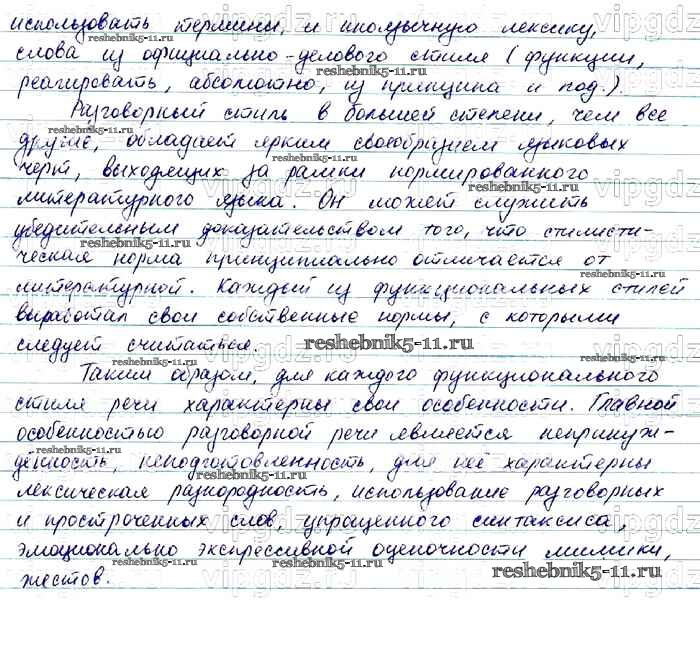 использовать термины, и иноязычную лексику,
слова из официально-делового стиля (функции,
реагировать, абсолютно, из принципа и под.).
Разговорный стиль в большей степени, чем все
другие, обладает ярким своеобразием языковых
черт, выходящих за рамки нормированного
литературного языка. Он может служить
убедительным доказательством того, что стилисти-
ческая норма принципиально отличается от
литературной. Каждый из функциональных стилей
выработал свои собственные нормы, с которыми
следует считаться.
Таким образом, для каждого функционального
стиля речи характерны свои особенности. Главной
особенностью разговорной речи является непринуж-
дённость, неподготовленность, для неё характерны
лексическая разнородность, использование разговорных
и простроченных слов, упрощенного синтаксиса,
эмоционально экспрессивной оценочности мимики,
жестов.
reshebnik5-11.ru
vipgdz.ru